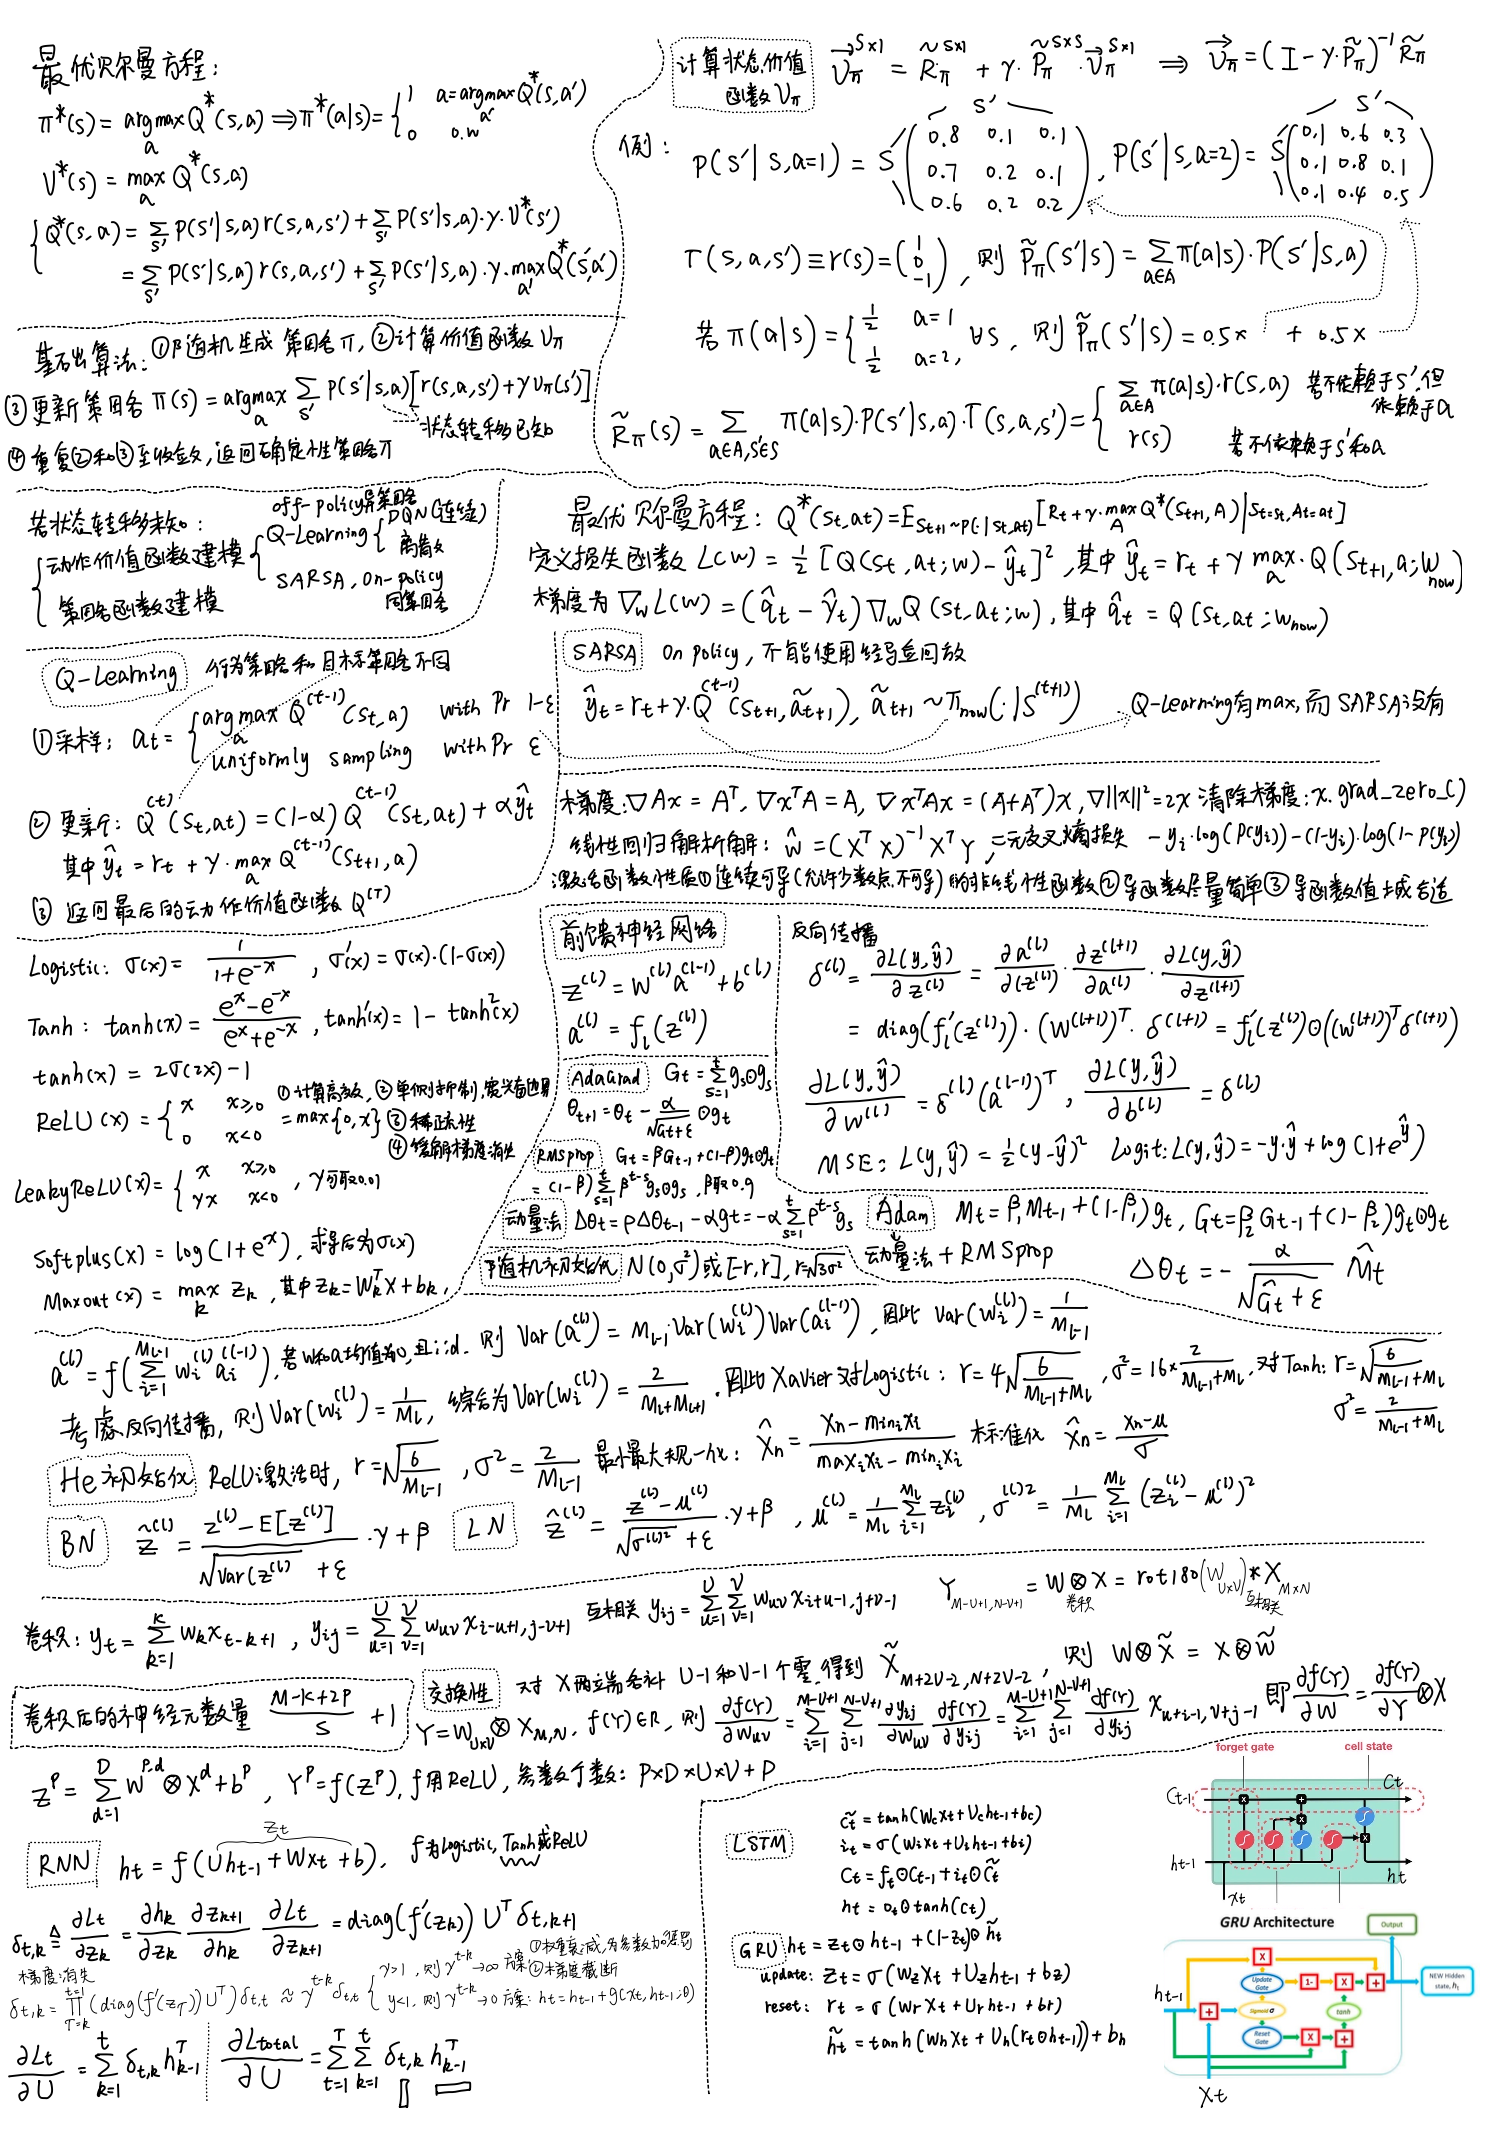 最优贝尔曼方程:
π*(s) = argmax_a Q*(s,a) ⇒ π*(a|s) = { 1 a = argmax_a' Q*(s,a') ; 0 o.w
V*(s) = max_a Q*(s,a)
{ Q*(s,a) = Σ_s' P(s'|s,a) r(s,a,s') + Σ_s' P(s'|s,a)·γ·V*(s')
= Σ_s' P(s'|s,a) r(s,a,s') + Σ_s' P(s'|s,a)·γ·max_a' Q*(s',a')
计算状态价值函数 V_π
V_π^{S×1} = R̃_π^{S×1} + γ·P̃_π^{S×S}·V_π^{S×1} ⇒ V_π = (I - γ·P̃_π)^{-1} R̃_π
例: P(s'|s,a=1) = S ( 0.8 0.1 0.1 ; 0.7 0.2 0.1 ; 0.6 0.2 0.2 ), P(s'|s,a=2) = S ( 0.1 0.6 0.3 ; 0.1 0.8 0.1 ; 0.1 0.4 0.5 )
S' S'
r(s,a,s') ≡ r(s) = ( 1 ; 0 ; -1 ), 则 P̃_π(s'|s) = Σ_{a∈A} π(a|s)·P(s'|s,a)
若 π(a|s) = { 1/2 a=1 ; 1/2 a=2, ∀s, 则 P̃_π(s'|s) = 0.5× + 0.5×
R̃_π(s) = Σ_{a∈A,s'∈S} π(a|s)·P(s'|s,a)·r(s,a,s') = { Σ_{a∈A} π(a|s)·r(s,a) 若不依赖于s',但依赖于a ; r(s) 若不依赖于s'和a
基础算法: ①随机生成 策略π, ②计算价值函数 V_π
③更新策略 π(s) = argmax_a Σ_s' P(s'|s,a)[r(s,a,s') + γV_π(s')]
状态转移已知
④ 重复②和③至收敛, 返回确定性策略π
若状态转移未知:
{ 动作价值函数建模 { Q-Learning { DQN(连续) 离散 ; SARSA, on-policy 同策略
off-policy 异策略
策略函数建模
最优贝尔曼方程: Q*(s_t,a_t) = E_{S_{t+1}~P(·|s_t,a_t)} [R_t + γ·max_A Q*(S_{t+1},A) | S_t=s_t, A_t=a_t]
定义损失函数 L(w) = 1/2 [Q(s_t,a_t;w) - ŷ_t]², 其中 ŷ_t = r_t + γ max_a·Q(s_{t+1},a;w_now)
梯度为 ∇_w L(w) = (q̂_t - ŷ_t)∇_w Q(s_t,a_t;w), 其中 q̂_t = Q(s_t,a_t;w_now)
Q-Learning 行为策略和目标策略不同
①采样: a_t = { argmax_a Q^{(t-1)}(s_t,a) with Pr 1-ε ; uniformly sampling with Pr ε
② 更新: Q^{(t)}(s_t,a_t) = (1-α)Q^{(t-1)}(s_t,a_t) + αŷ_t
其中 ŷ_t = r_t + γ·max_a Q^{(t-1)}(s_{t+1},a)
③ 返回最后的动作价值函数 Q^{(T)}
SARSA On policy, 不能使用经验回放
ŷ_t = r_t + γ·Q^{(t-1)}(s_{t+1},ã_{t+1}), ã_{t+1} ~ π_now(·|s^{(t+1)}) Q-Learning有max,而SARSA没有
梯度: ∇Ax = A^T, ∇x^TA = A, ∇x^TAx = (A+A^T)x, ∇||x||² = 2x 清除梯度: x.grad_zero_()
线性回归解析解: ŵ = (X^T X)^{-1} X^T Y, 二元交叉熵损失 -y_i·log(p(y_i)) - (1-y_i)·log(1-p(y_i))
激活函数性质①连续可导(允许少数点不可导)的非线性函数②导函数尽量简单③导函数值域合适
Logistic: σ(x) = 1/(1+e^{-x}), σ'(x) = σ(x)·(1-σ(x))
Tanh: tanh(x) = (e^x - e^{-x})/(e^x + e^{-x}), tanh'(x) = 1 - tanh²(x)
tanh(x) = 2σ(2x) - 1
ReLU(x) = { x x≥0 ; 0 x<0 = max{0,x} ①计算高效, ②单侧抑制,宽兴奋边界 ③稀疏性 ④缓解梯度消失
LeakyReLU(x) = { x x≥0 ; γx x<0, γ可取0.01
Softplus(x) = log(1+e^x), 求导后为σ(x)
Maxout(x) = max_k z_k, 其中 z_k = W_k^T X + b_k,
前馈神经网络
z^{(l)} = W^{(l)} a^{(l-1)} + b^{(l)}
a^{(l)} = f_l(z^{(l)})
反向传播
δ^{(l)} = ∂L(y,ŷ)/∂z^{(l)} = ∂a^{(l)}/∂(z^{(l)}) · ∂z^{(l+1)}/∂a^{(l)} · ∂L(y,ŷ)/∂z^{(l+1)}
= diag(f_l'(z^{(l)}))·(W^{(l+1)})^T·δ^{(l+1)} = f_l'(z^{(l)})⊙((W^{(l+1)})^T δ^{(l+1)})
∂L(y,ŷ)/∂W^{(l)} = δ^{(l)}(a^{(l-1)})^T, ∂L(y,ŷ)/∂b^{(l)} = δ^{(l)}
MSE: L(y,ŷ) = 1/2(y-ŷ)² Logit: L(y,ŷ) = -y·ŷ + log(1+e^ŷ)
AdaGrad G_t = Σ_{s=1}^t g_s⊙g_s
θ_{t+1} = θ_t - α/√(G_t+ε) ⊙g_t
RMSprop G_t = βG_{t-1} + (1-β)g_t⊙g_t
= (1-β)Σ_{s=1}^t β^{t-s} g_s⊙g_s, β取0.9
动量法 Δθ_t = ρΔθ_{t-1} - αg_t = -αΣ_{s=1}^t ρ^{t-s} g_s
Adam M_t = β_1M_{t-1} + (1-β_1)g_t, G_t = β_2G_{t-1} + (1-β_2)g_t⊙g_t
动量法 + RMSprop Δθ_t = - α/(√Ĝ_t + ε) M̂_t
随机初始化 N(0,σ²) 或 [-r,r], r=√3σ²
a^{(l)} = f(Σ_{i=1}^{M_{l-1}} w_i^{(l)} a_i^{(l-1)}), 若w和a均值为0,且iid. 则 Var(a^{(l)}) = M_{l-1}·Var(w_i^{(l)})Var(a_i^{(l-1)}), 因此 Var(w_i^{(l)}) = 1/M_{l-1}
考虑反向传播, 则 Var(w_i^{(l)}) = 1/M_l, 综合为 Var(w_i^{(l)}) = 2/(M_l+M_{l+1}). 因此Xavier对Logistic: r = 4√(6/(M_{l-1}+M_l)), σ² = 16×2/(M_{l-1}+M_l), 对Tanh: r = √(6/(M_{l-1}+M_l))
σ² = 2/(M_{l-1}+M_l)
He初始化 ReLU激活时, r = √(6/M_{l-1}), σ² = 2/M_{l-1} 最小最大规一化: x̂_n = (x_n - min_i x_i)/(max_i x_i - min_i x_i) 标准化 x̂_n = (x_n - μ)/σ
BN ẑ^{(l)} = (z^{(l)} - E[z^{(l)}])/(√Var(z^{(l)}) + ε) ·γ + β LN ẑ^{(l)} = (z^{(l)} - μ^{(l)})/(√σ^{(l)2} + ε) ·γ + β, μ^{(l)} = 1/M_l Σ_{i=1}^{M_l} z_i^{(l)}, σ^{(l)2} = 1/M_l Σ_{i=1}^{M_l} (z_i^{(l)} - μ^{(l)})²
卷积: y_t = Σ_{k=1}^K w_k x_{t-k+1}, y_ij = Σ_{u=1}^U Σ_{v=1}^V w_uv x_{i-u+1,j-v+1} 互相关 y_ij = Σ_{u=1}^U Σ_{v=1}^V w_uv x_{i+u-1,j+v-1} Y_{M-U+1,N-V+1} = W ⊗ X = rot180(W_{U×V}) * X_{M×N}
卷积 互相关
卷积后的神经元数量 (M-K+2P)/S + 1
交换性 对 X两端各补 U-1 和 V-1 个零,得到 X̃_{M+2U-2,N+2V-2}, 则 W⊗X̃ = X⊗W̃
Y = W_{U×V} ⊗ X_{M,N}, f(Y)∈R, 则 ∂f(Y)/∂W_uv = Σ_{i=1}^{M-U+1} Σ_{j=1}^{N-V+1} ∂y_ij/∂w_uv ∂f(Y)/∂y_ij = Σ_{i=1}^{M-U+1} Σ_{j=1}^{N-V+1} ∂f(Y)/∂y_ij x_{u+i-1,v+j-1} 即 ∂f(Y)/∂W = ∂f(Y)/∂Y ⊗X
Z^P = Σ_{d=1}^D W^{P,d} ⊗ X^d + b^P, Y^P = f(Z^P), f用ReLU, 参数个数: P×D×U×V + P
RNN h_t = f(Uh_{t-1} + Wx_t + b), f为Logistic, Tanh或ReLU
z_t
δ_{t,k} ≜ ∂L_t/∂z_k = ∂h_k/∂z_k ∂z_{k+1}/∂h_k ∂L_t/∂z_{k+1} = diag(f'(z_k)) U^T δ_{t,k+1}
梯度消失
δ_{t,k} = Π_{τ=k}^{t-1} (diag(f'(z_τ))U^T)δ_{t,t} ≈ γ^{t-k} δ_{t,t} { γ>1, 则γ^{t-k}→∞ 方案: ①权重衰减,为参数加惩罚 ②梯度截断 ; γ<1, 则γ^{t-k}→0 方案: h_t = h_{t-1} + g(x_t,h_{t-1};θ)
∂L_t/∂U = Σ_{k=1}^t δ_{t,k} h_{k-1}^T ∂L_total/∂U = Σ_{t=1}^T Σ_{k=1}^t δ_{t,k} h_{k-1}^T
LSTM
c̃_t = tanh(W_c x_t + U_c h_{t-1} + b_c)
i_t = σ(W_i x_t + U_i h_{t-1} + b_i)
C_t = f_t⊙C_{t-1} + i_t⊙c̃_t
h_t = o_t⊙tanh(C_t)
GRU h_t = z_t⊙h_{t-1} + (1-z_t)⊙h̃_t
update: z_t = σ(W_z x_t + U_z h_{t-1} + b_z)
reset: r_t = σ(W_r x_t + U_r h_{t-1} + b_r)
h̃_t = tanh(W_h x_t + U_h(r_t⊙h_{t-1})) + b_h
forget gate cell state
C_{t-1} C_t
h_{t-1} h_t
x_t
GRU Architecture
Output
Update Gate
NEW Hidden state, h_t
h_{t-1}
Sigmoid σ
tanh
Reset Gate
X_t